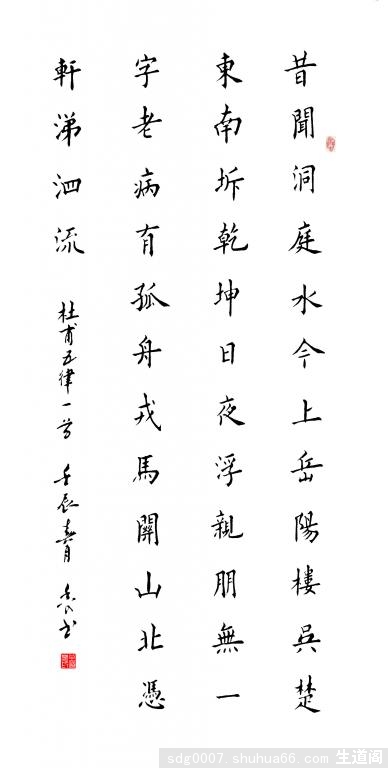 昔聞洞庭水今上岳陽樓吳楚
東南坼乾坤日夜浮親朋無一
字老病有孤舟戎馬關山北憑
軒涕泗流
杜甫五律一首 壬辰春月 書
sdg0007.shuhua66.com 生道阁